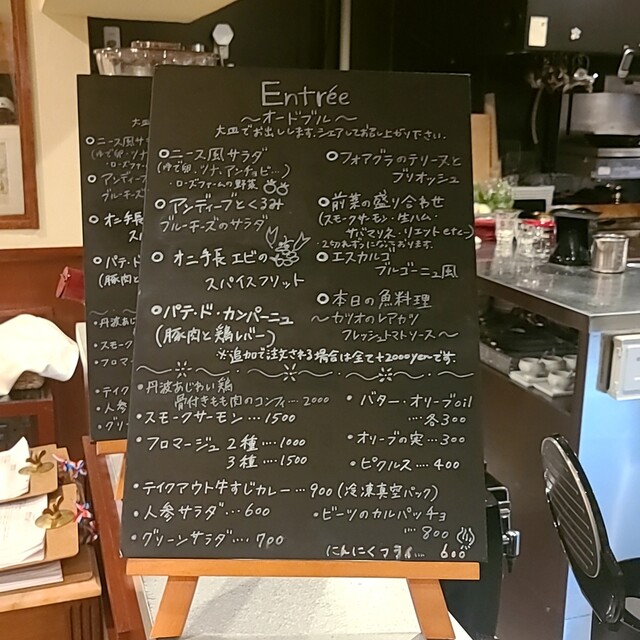 Entrée
～オードブル～
大皿でお出しします。シェアしてお召し上がり下さい。
ニース風サラダ
(ゆで卵、ツナ、アンチョビ…)
・ローズファームの野菜
アンディーブとくるみ
ブルーチーズのサラダ
オニ手長エビの
スパイスフリット
パテ・ド・カンパーニュ
(豚肉と鶏レバー)
フォアグラのテリーヌと
ブリオッシュ
前菜の盛り合わせ
(スモークサーモン・生ハム・
サバマリネ・リエットetc.)
・2切れずつになっております。
エスカルゴ
ブルゴーニュ風
本日の魚料理
～カツオのレアカツ
フレッシュトマトソース～
※追加で注文される場合は全て+2000yenです。
・丹波あじわい鶏
骨付きもも肉のコンフィ…2000
・スモークサーモン…1500
・フロマージュ 2種…1000
3種…1500
・バター・オリーブoil
…各300
・オリーブの実…300
・ピクルス…400
・テイクアウト牛すじカレー…900(冷凍真空パック)
・人参サラダ…600
・ビーツのカルパッチョ
…800
・グリーンサラダ…700
にんにくフライ… 600
大皿
ニース風サ
(ゆで卵、ツナ
・ローズファ
アンディー
ブルーチーズ
オニ手長
ス
パテ・ド
(豚肉と
・丹波あじ
・スモーク
・フロマー
・テイク
・人参
・グリ